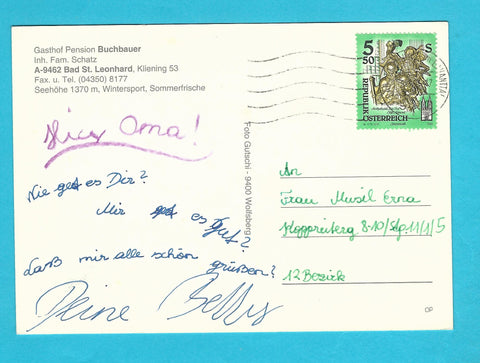 Gasthof Pension Buchbauer
Inh. Fam. Schatz
A-9462 Bad St. Leonhard, Kliening 53
Fax. u. Tel. (04350) 8177
Seehöhe 1370 m, Wintersport, Sommerfrische
Oma!
Wie geht es Dir?
Mir geht es gut?
daß mir alle schön grüßen?
Deine
Foto Gutschi - 9400 Wolfsberg
5 50 S
REPUBLIK
ÖSTERREICH
An
Frau Musil Erna
8-10/Stg. 11/1/5
12 Bezirk
DP